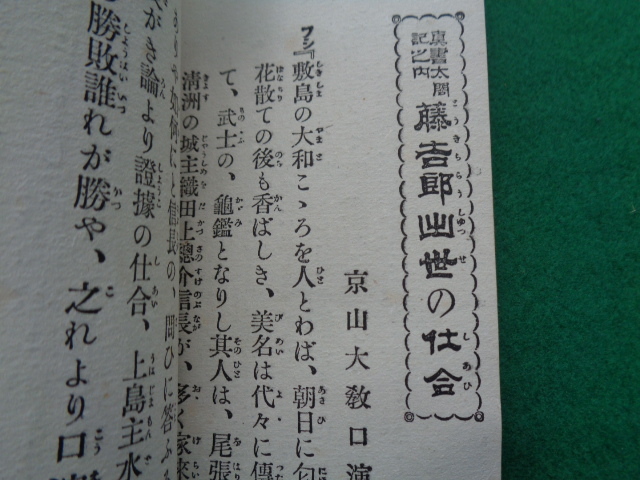 真書太閤
記之内
藤吉郎出世の仕合
京山大教口演
フシ『敷島の大和こゝろを人とわば、朝日に匂
花散ての後も香ばしき、美名は代々に傳
て、武士の、龜鑑となりし其人は、尾張
淸洲の城主織田上總介信長が、多く家來
ありや如何にと信長の、問ひに答ふ
がき論より證據の仕合、上島主水
勝敗誰れが勝や、之れより口